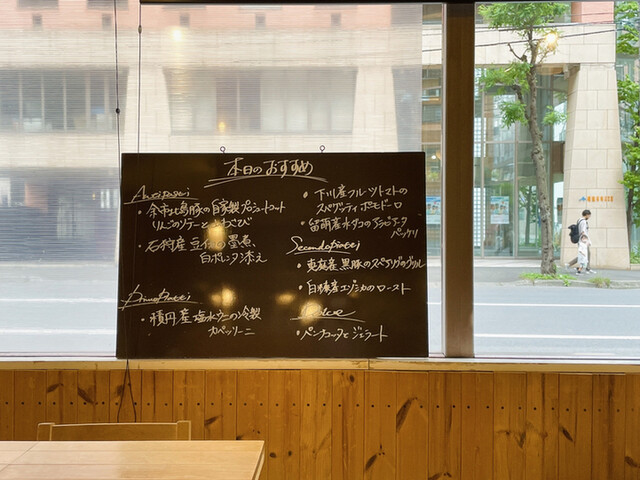 本日のおすすめ
Antipasti
・余市北島豚の自家製プロシュートコット
りんごのソテーとわさび
・石狩産 豆イカの墨煮、
白ポレンタ添え
Primi Piatti
・積丹産塩水ウニの冷製
カペッリーニ
・下川産フルーツトマトの
スパゲッティ ポモドーロ
・留萌産水ダコのアラビアータ
パッケリ
Secondo piatti
・恵庭産黒豚のスペアリブのグリル
・白糠産エゾシカのロースト
Dolce
・パンナコッタとジェラート